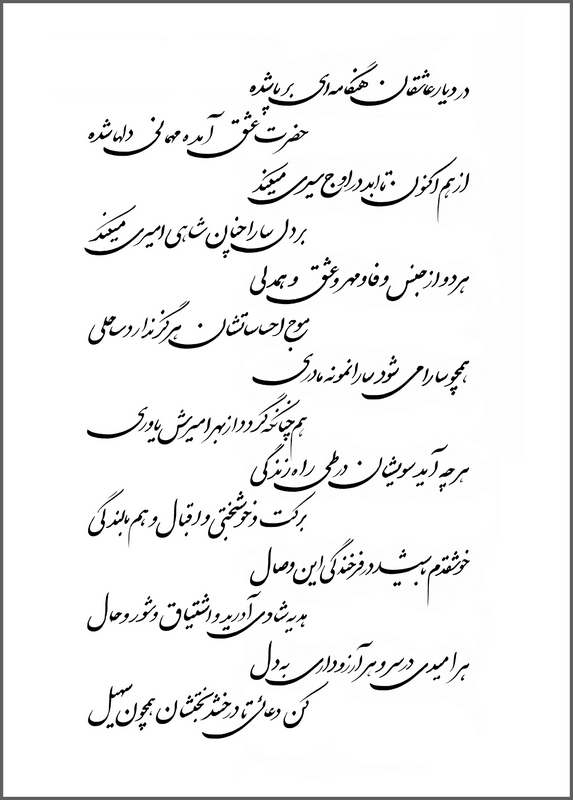 در دیار عاشقان هنگامه‌ای بر پا شده
حضرت عشق آمده مهمانی دلها شده
از هم اکنون تا ابد در اوج سیری میکند
بر دل سارا چنان شاهی امیری میکند
هر دو از جنس وفا و مهر و عشق و همدلی
موج احساساتشان هرگز ندارد ساحلی
همچو سارا می شود سارا نمونه مادری
هم چنانکه گردد از بهر امیرش یاوری
هر چه آید سویشان در طی راه زندگی
برکت و خوشبختی و اقبال و هم بالندگی
خوشقدم باشید در فرخندگی این وصال
هدیه شادی آدرید و اشتیاق و شور و حال
هر امیدی در سر و هر آرزو داری به دل
کن دعائی تا درخشد بختشان همچون سهیل